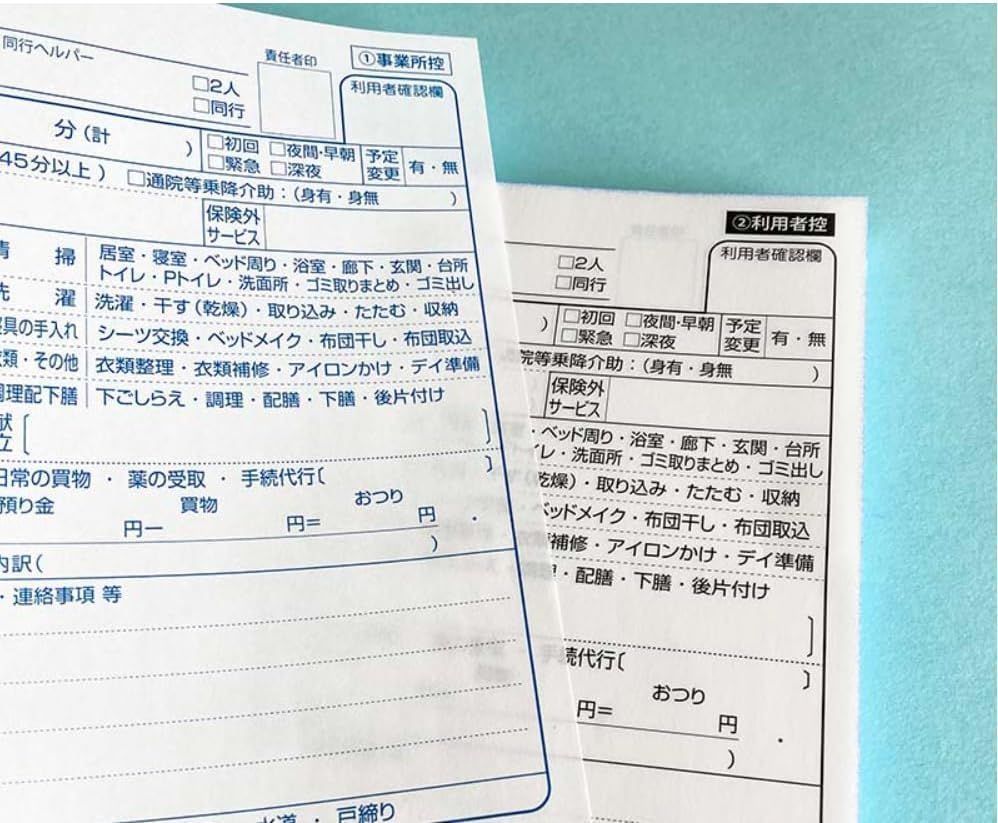 同行ヘルパー
責任者印
①事業所控
□2人
□同行
利用者確認欄
分(計 )
□初回 □夜間・早朝
□緊急 □深夜
予定変更 有・無
45分以上) □通院等乗降介助:(身有・身無 )
保険外サービス
清 掃 居室・寝室・ベッド周り・浴室・廊下・玄関・台所
トイレ・Pトイレ・洗面所・ゴミ取りまとめ・ゴミ出し
洗 濯 洗濯・干す(乾燥)・取り込み・たたむ・収納
寝具の手入れ シーツ交換・ベッドメイク・布団干し・布団取込
衣類・その他 衣類整理・衣類補修・アイロンかけ・デイ準備
調理配下膳 下ごしらえ・調理・配膳・下膳・後片付け
献立[ ]
日常の買物・薬の受取・手続代行[ ]
預り金 買物 おつり
円ー 円= 円.
内訳( )
・連絡事項 等
水道・戸締り
②利用者控
□2人
□同行
利用者確認欄
)
□初回 □夜間・早朝
□緊急 □深夜
予定変更 有・無
院等乗降介助:(身有・身無 )
保険外サービス
・ベッド周り・浴室・廊下・玄関・台所
イレ・洗面所・ゴミ取りまとめ・ゴミ出し
乾燥)・取り込み・たたむ・収納
ベッドメイク・布団干し・布団取込
補修・アイロンかけ・デイ準備
・配膳・下膳・後片付け
]
続代行[ ]
おつり
円= 円.
)